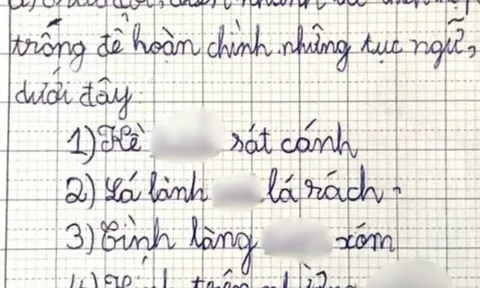 trống để hoàn chỉnh những tục ngữ,
dưới đây
1) Kề sát cánh
2) Lá lành lá rách.
3) Tình làng xóm
4) trên